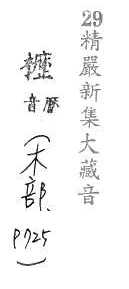 29精嚴新集大藏音
音曆
(木部.
P725)